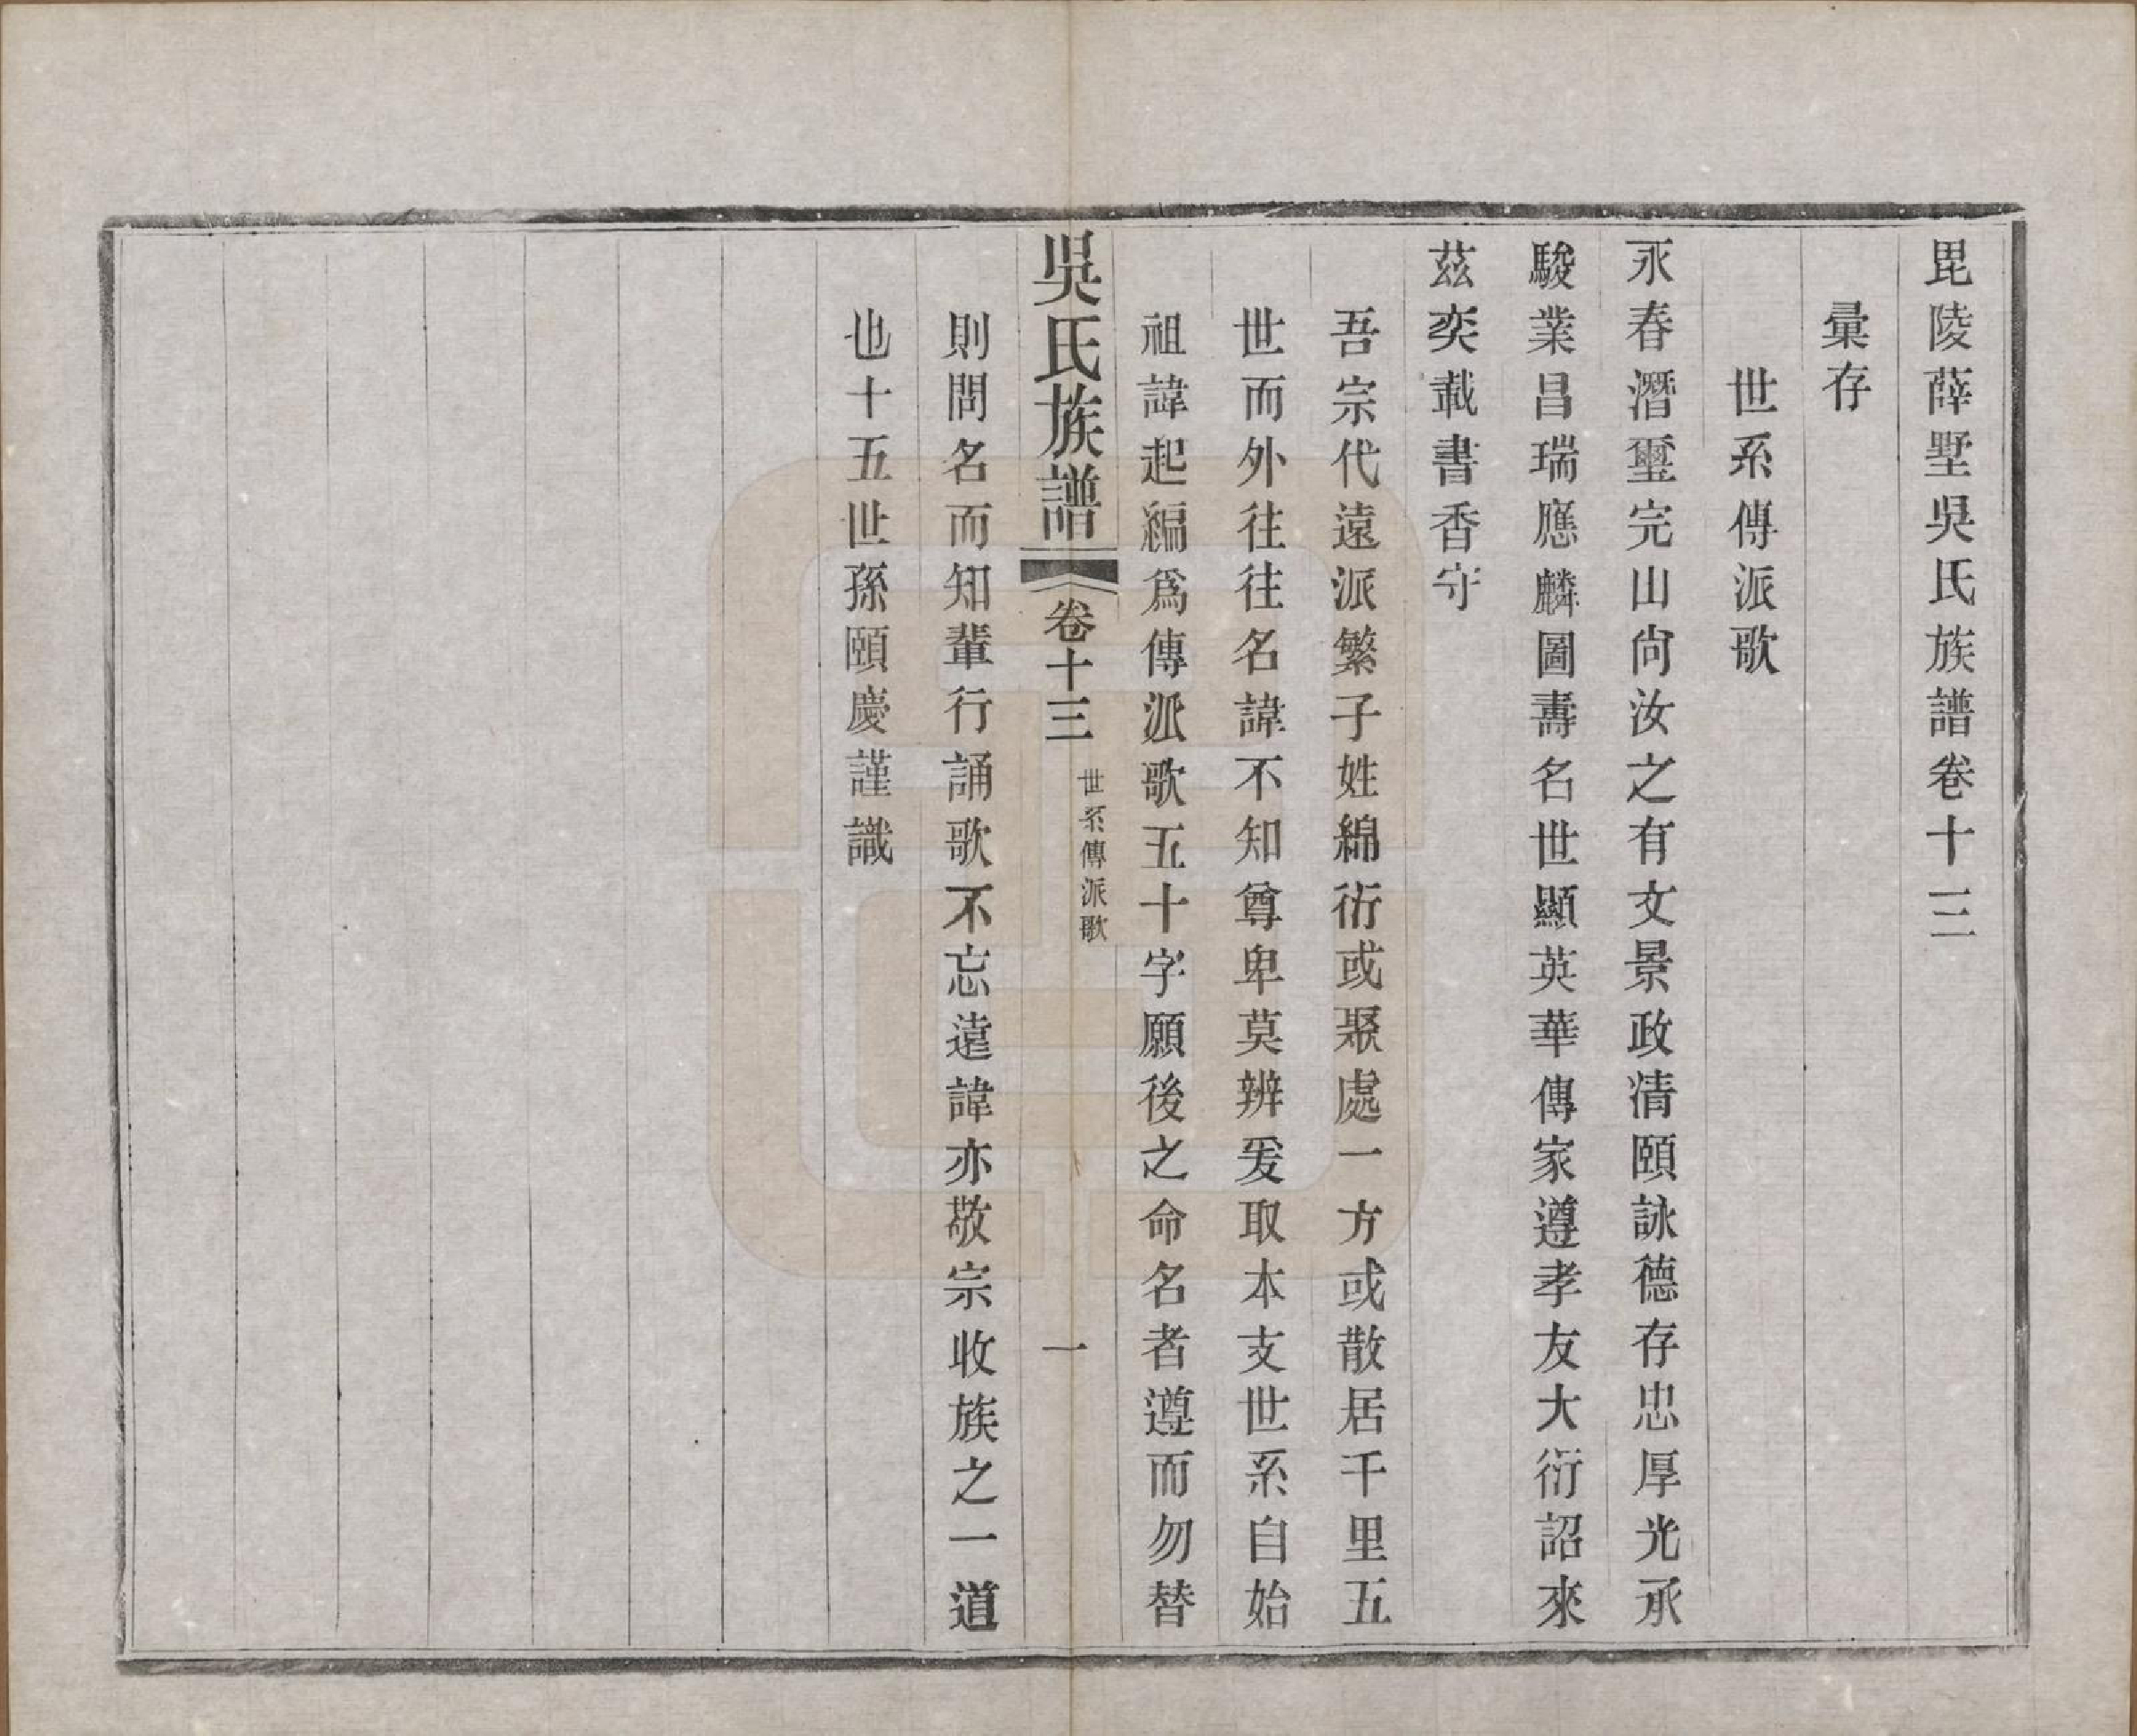 毘陵薛墅吳氏族譜卷十三
彙存
世系傳派歌
永春潛璽完山尙汝之有文景政清頤詠德存忠厚光承
駿業昌瑞應麟圖壽名世顯英華傳家遵孝友大衍詔來
茲奕載書香守
吾宗代遠派繁子姓綿衍或聚處一方或散居千里五
世而外往往名諱不知尊卑莫辨爰取本支世系自始
祖諱起編爲傳派歌五十字願後之命名者遵而勿替
吳氏族譜 卷十三 世系傳派歌 一
則問名而知輩行誦歌不忘遠諱亦敬宗收族之一道
也十五世孫頤慶謹識